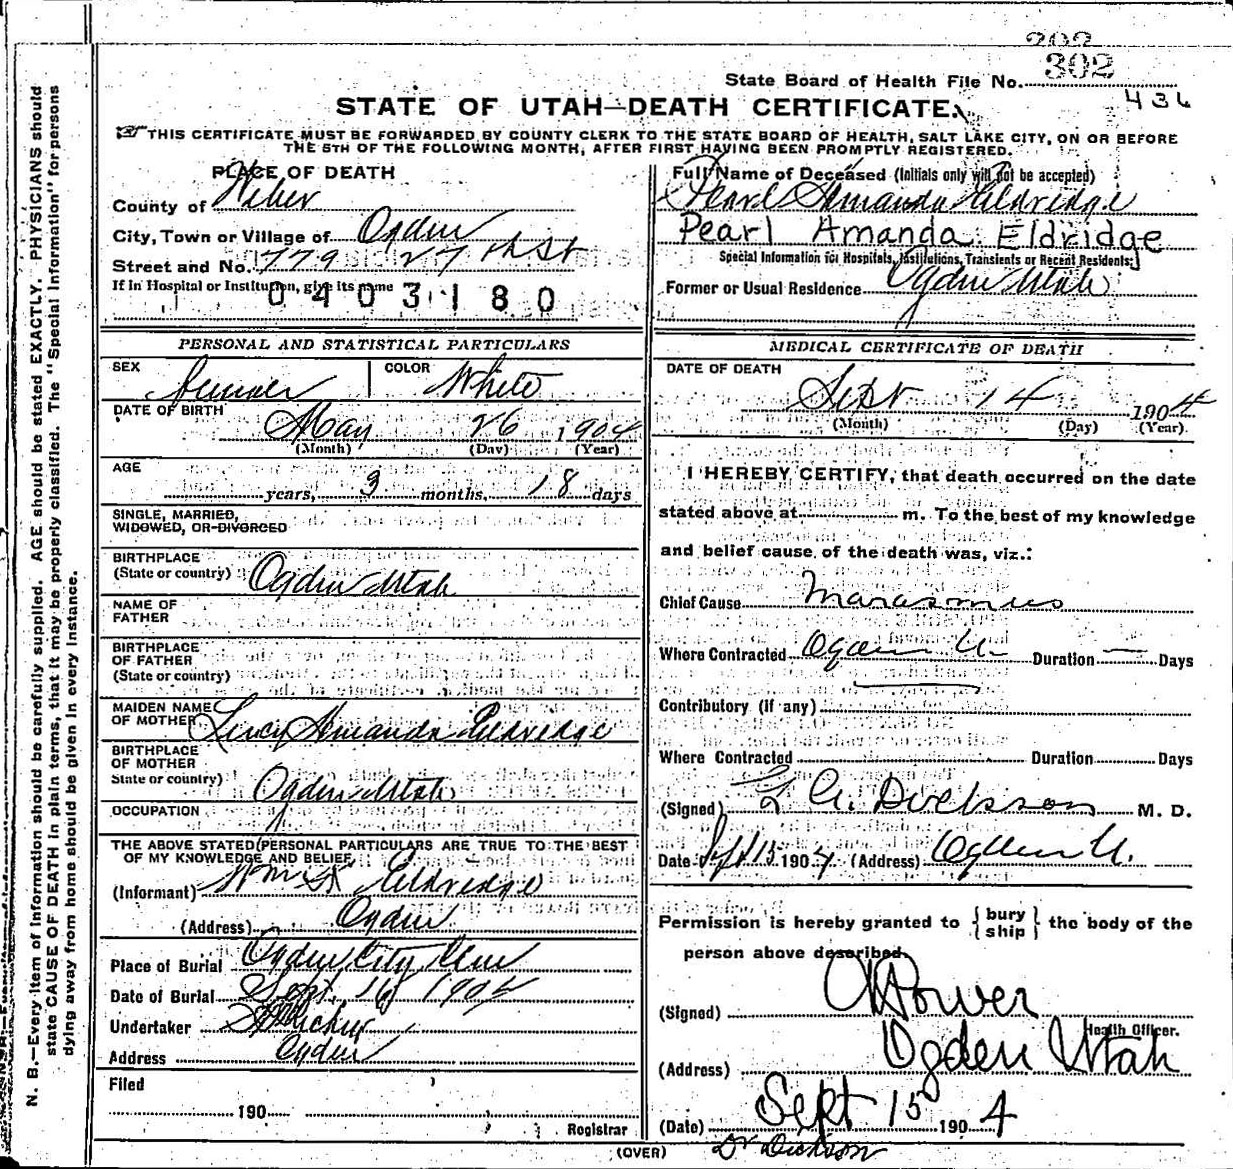 202
302
State Board of Health File No.
436
STATE OF UTAH—DEATH CERTIFICATE.
THIS CERTIFICATE MUST BE FORWARDED BY COUNTY CLERK TO THE STATE BOARD OF HEALTH, SALT LAKE CITY, ON OR BEFORE
THE 5TH OF THE FOLLOWING MONTH, AFTER FIRST HAVING BEEN PROMPTLY REGISTERED.
PLACE OF DEATH
County of Weber
City, Town or Village of Ogden
Street and No. 779 27th St
If in Hospital or Institution, give its name
0403180
Full Name of Deceased (Initials only will not be accepted)
Pearl Amanda Eldridge
Pearl Amanda Eldridge
Special Information for Hospitals, Institutions, Transients or Recent Residents:
Former or Usual Residence Ogden Utah
PERSONAL AND STATISTICAL PARTICULARS
SEX Female COLOR White
DATE OF BIRTH
May 26 1904
(Month) (Day) (Year)
AGE
years, 3 months, 18 days
SINGLE, MARRIED,
WIDOWED, OR DIVORCED
BIRTHPLACE
(State or country) Ogden Utah
NAME OF
FATHER
BIRTHPLACE
OF FATHER
(State or country)
MAIDEN NAME
OF MOTHER Lucy Amanda Eldredge
BIRTHPLACE
OF MOTHER
State or country) Ogden Utah
OCCUPATION
THE ABOVE STATED PERSONAL PARTICULARS ARE TRUE TO THE BEST
OF MY KNOWLEDGE AND BELIEF
(Informant) Eldredge
(Address) Ogden
Place of Burial Ogden City Cem
Date of Burial Sept. 16 1904
Undertaker
Address Ogden
Filed
190
Registrar
MEDICAL CERTIFICATE OF DEATH
DATE OF DEATH
Sept 14 1904
(Month) (Day) (Year)
I HEREBY CERTIFY, that death occurred on the date
stated above at m. To the best of my knowledge
and belief cause of the death was, viz.:
Chief Cause Marasmus
Where Contracted Ogden U. Duration — Days
Contributory (if any)
Where Contracted Duration Days
(Signed) Dickson M. D.
Date Sept 15 1904 (Address) Ogden U.
Permission is hereby granted to { bury ship } the body of the
person above described.
(Signed)
Health Officer.
(Address) Ogden Utah
(Date) Sept 15 1904
Dr Dickson
(OVER)
N. B.—Every item of information should be carefully supplied. AGE should be stated EXACTLY. PHYSICIANS should
state CAUSE OF DEATH in plain terms, that it may be properly classified. The "Special Information" for persons
dying away from home should be given in every instance.